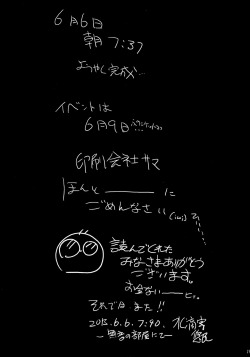 6月6日
朝 7:37
ようやく完成…
イベントは
6月9日…
印刷会社サマ
ほんと―――に
ごめんなさい
読んでくれた
みなさまありがとう
ございます。
それではまた!!
2015.6.6. 7:40.
の部屋にて